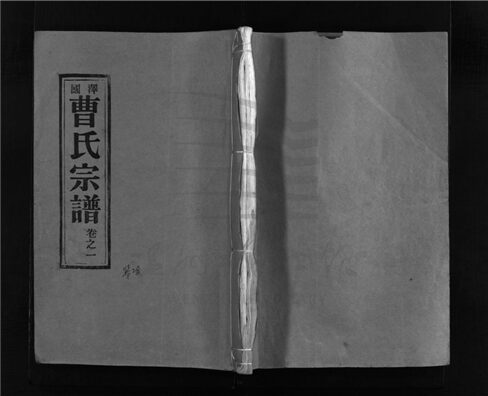 澤國
曹氏宗譜
卷之一